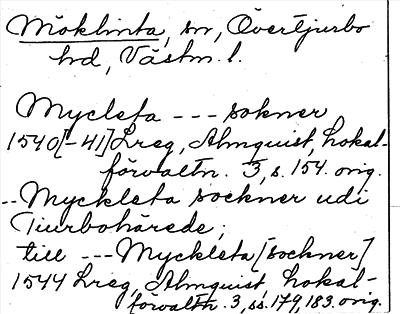 Möklinta, sn, Övertjurbo
hd, Västm. l.
Mycleta --- sokner
1540[-41] Lreg, Almquist, Lokal-
förvaltn. 3, s. 154. orig.
-- Myckleta sockner udi
Tiurbohärede;
till --- Myckleta [sockner]
1544 Lreg, Almquist, Lokal-
förvaltn. 3, ss. 179, 183. orig.